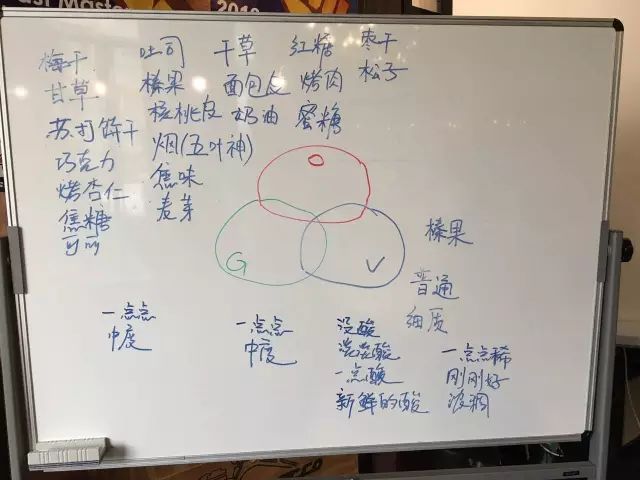 梅干 吐司 干草 红糖 枣干
甘草 榛果 面包 烤肉 松子
苏打饼干 核桃皮 奶油 蜜糖
巧克力 烟(五叶神)
烤杏仁 焦味
焦糖 麦芽
可可
O
G V
榛果
普通
细质
一点点
中度
一点点
中度
没酸
淡淡酸
一点酸
新鲜的酸
一点点稀
刚刚好
浓稠